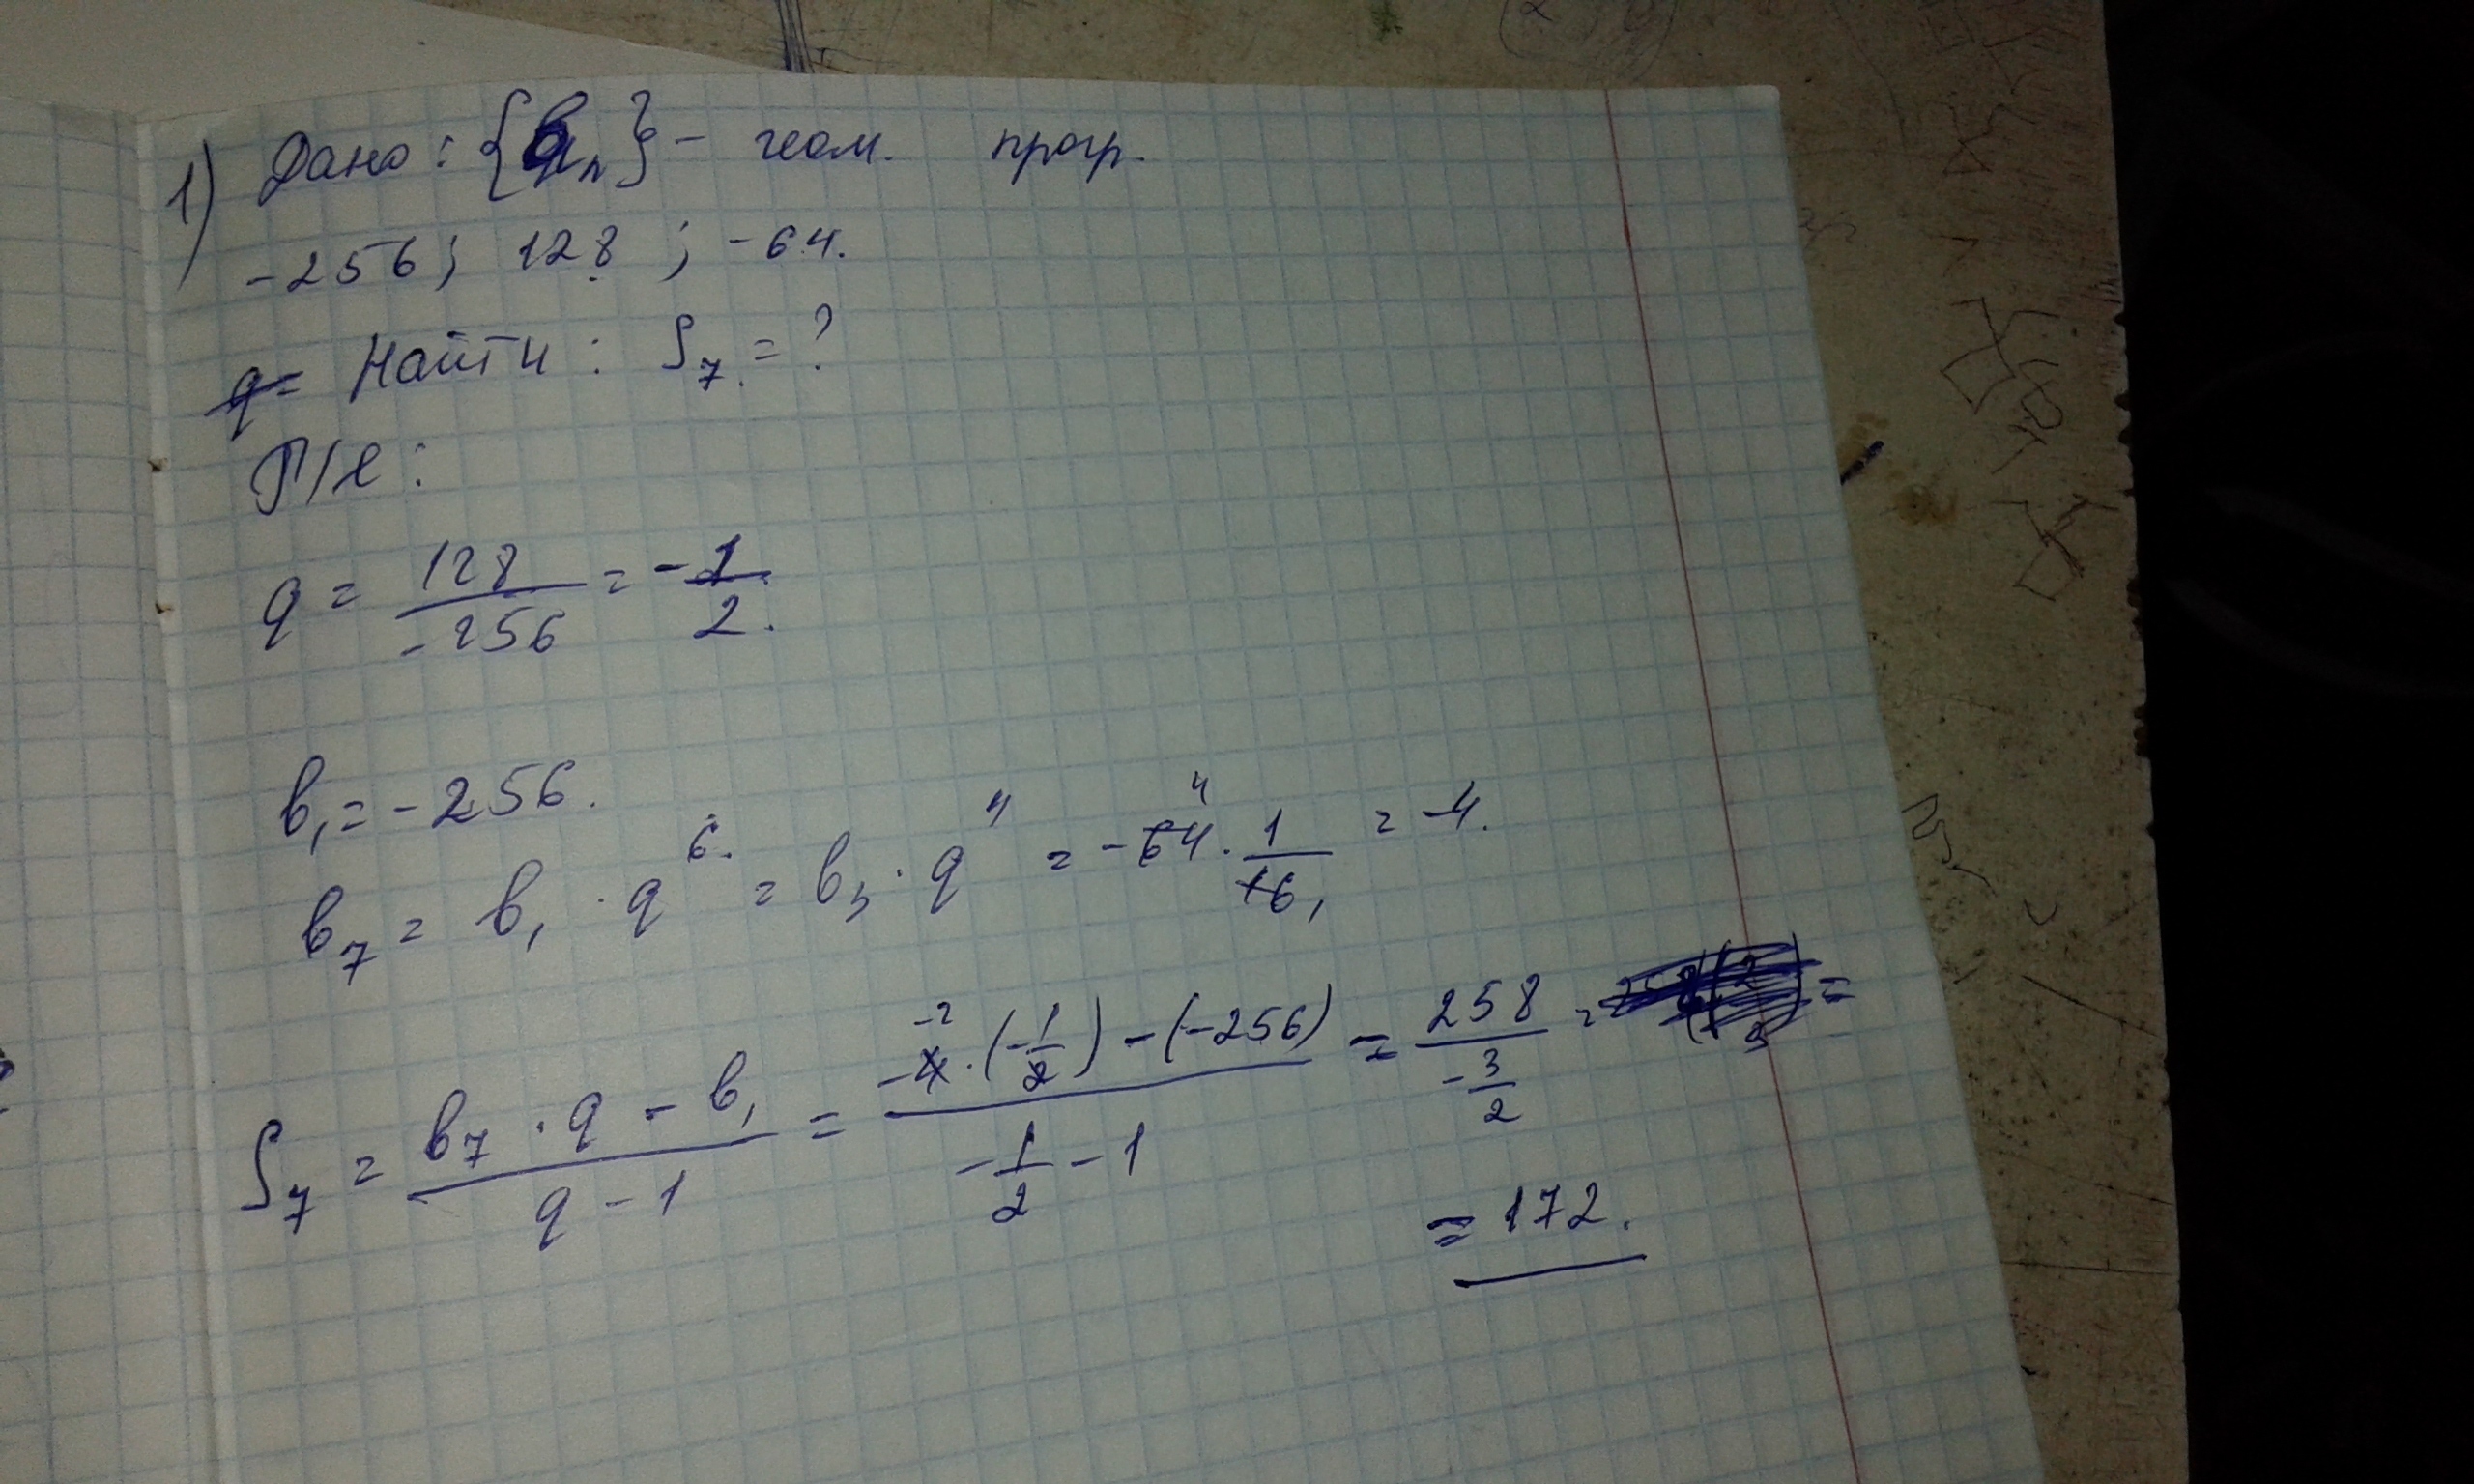 1) Дано: {bn} - геом. прогр.
-256; 128; -64.
Найти: S7 = ?
П/к:
q = 128/-256 = -1/2.
b1 = -256.
b7 = b1 · q^6 = b3 · q^4 = -64 · 1/16 = -4.
S7 = (b7 · q - b1)/(q - 1) = (-4 · (-1/2) - (-256))/(-1/2 - 1) = 258/(-3/2) = =
= 172.